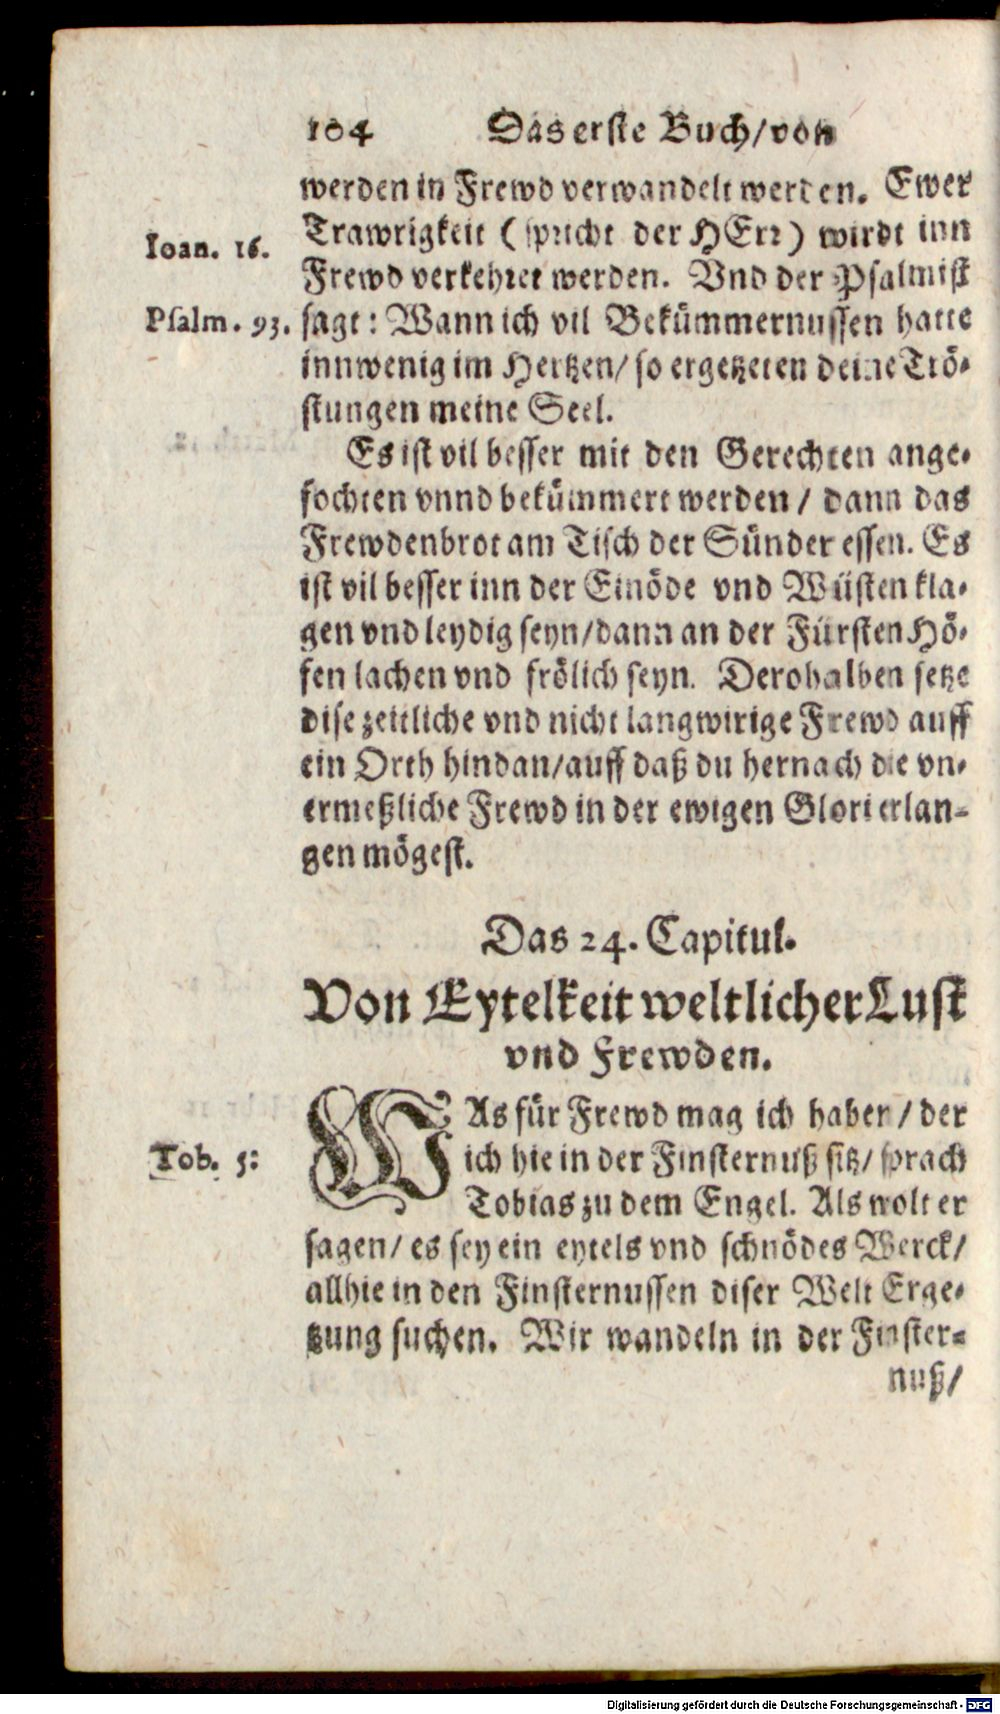 104 Das erste Buch/von
werden in Frewd verwandelt werden. Ewer
Ioan. 16. Trawrigkeit (spricht der HErr) wirdt inn
Frewd verkehret werden. Vnd der Psalmist
Psalm. 93. sagt: Wann ich vil Bekümmernussen hatte
innwenig im Hertzen/ so ergetzeten deine Trö-
stungen meine Seel.
Es ist vil besser mit den Gerechten ange-
fochten vnnd bekümmert werden / dann das
Frewdenbrot am Tisch der Sünder essen. Es
ist vil besser inn der Einöde vnd Wüsten kla-
gen vnd leydig seyn/dann an der Fürsten Hö-
fen lachen vnd frölich seyn. Derohalben setze
dise zeitliche vnd nicht langwirige Frewd auff
ein Orth hindan/auff daß du hernach die vn-
ermeßliche Frewd in der ewigen Glori erlan-
gen mögest.
Das 24. Capitul.
Von Eytelkeit weltlicher Lust
vnd Frewden.
WAs für Frewd mag ich haben / der
Tob. 5: ich hie in der Finsternuß sitz/ sprach
Tobias zu dem Engel. Als wolt er
sagen/ es sey ein eytels vnd schnödes Werck/
allhie in den Finsternussen diser Welt Erge-
tzung suchen. Wir wandeln in der Finster-
nuß/
Digitalisierung gefördert durch die Deutsche Forschungsgemeinschaft - DFG